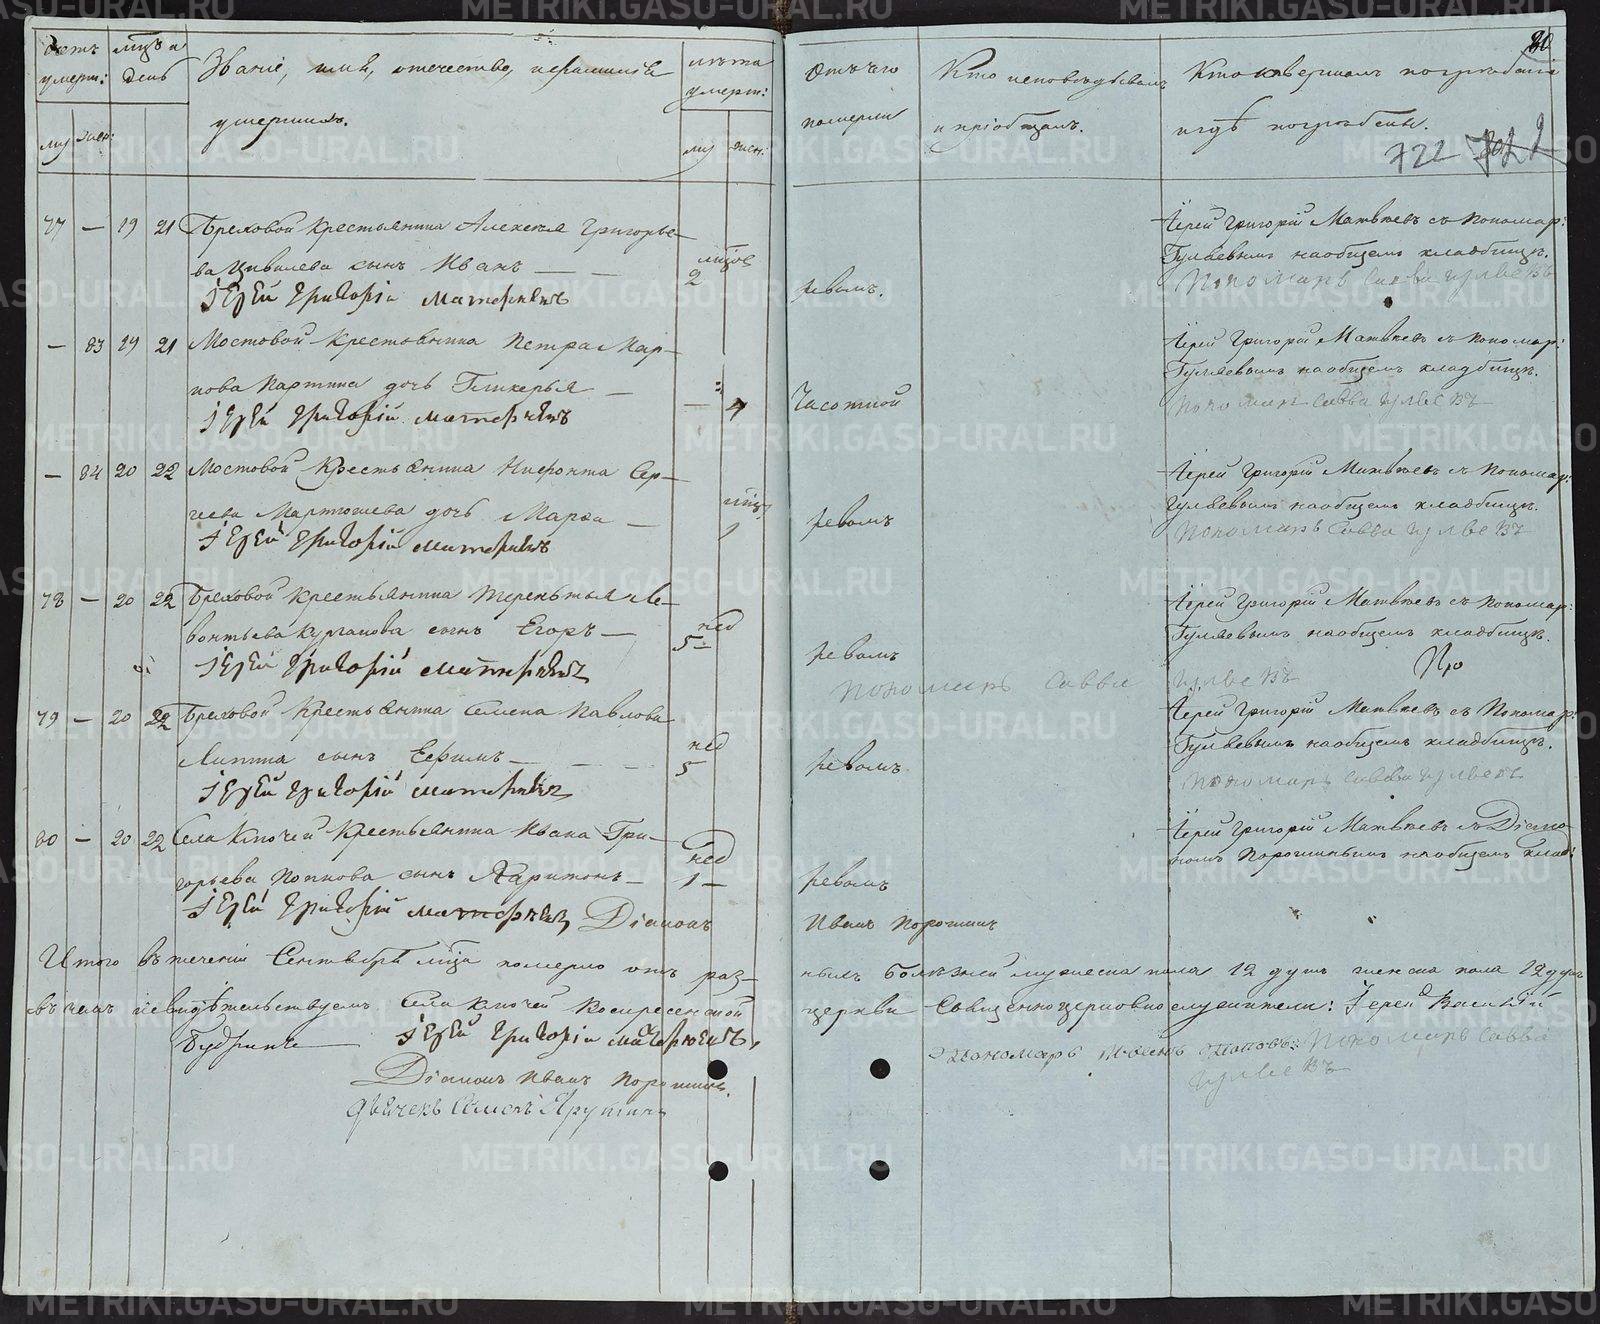 Счетъ умерш: мцъ и день Званіе, имя, отечество, и фамилія умершихъ. лѣта умерш:
му жен: му жен:
Отъ чего померли
Кто исповѣдывалъ и пріобщалъ.
Кто совершалъ погребеніе и гдѣ погребены.
80
722
77 — 19 21 Бреховой крестьянина Алексѣя Григорье-
ва сынъ Иванъ — — мцов 2
Іерей Григорій Матвѣевъ
ревомъ.
Іерей Григорій Матвѣевъ съ Пономар:
Гуляевымъ на общемъ кладбищѣ.
Пономарь Савва Гуляевъ
— 83 19 21 Мостовой Крестьянина Петра Мар-
кова дочь Гликерья — — 4
Іерей Григорій Матвѣевъ
Чахоткой
Іерей Григорій Матвѣевъ съ Пономар:
Гуляевымъ на общемъ кладбищѣ.
Пономарь Савва Гуляевъ
— 84 20 22 Мостовой Крестьянина Нифонта Сер-
гѣева Мартюшева дочь Марѳа — мцъ 1
Іерей Григорій Матвѣевъ
ревомъ
Іерей Григорій Матвѣевъ съ Пономар:
Гуляевымъ на общемъ кладбищѣ.
Пономарь Савва Гуляевъ
78 — 20 22 Бреховой Крестьянина Терентья Ле-
вонтьева Курганова сынъ Егоръ — нед 5
Іерей Григорій Матвѣевъ
ревомъ
Іерей Григорій Матвѣевъ съ Пономар:
Гуляевымъ на общемъ кладбищѣ.
Пономарь Савва Гуляевъ
79 — 20 22 Бреховой Крестьянина Семена Павлова
сынъ Ефимъ — — нед 5
Іерей Григорій Матвѣевъ
ревомъ
Іерей Григорій Матвѣевъ съ Пономар:
Гуляевымъ на общемъ кладбищѣ.
Пономарь Савва Гуляевъ
80 — 20 22 Села Ключей Крестьянина Ивана Гри-
горьева Попкова сынъ Харитонъ — нед 1
Іерей Григорій Матвѣевъ Діаконъ Иванъ Порошинъ
ревомъ
Іерей Григорій Матвѣевъ съ Діако-
номъ Порошинымъ на общемъ клад:
Итого въ теченіи Сентября мца померло отъ раз- ныхъ болѣзней мужеска пола 12 душъ женска пола 12 душ
въ чемъ и свидѣтельствуемъ Села Ключей Воскресенской церкви Священноцерковнослужители: Іерей Василій
Будринъ Іерей Григорій Матвѣевъ, Пономарь Поповъ: Пономарь Савва
Гуляевъ
Діаконъ Иванъ Порошинъ.
METRIKI.GASO-URAL.RU